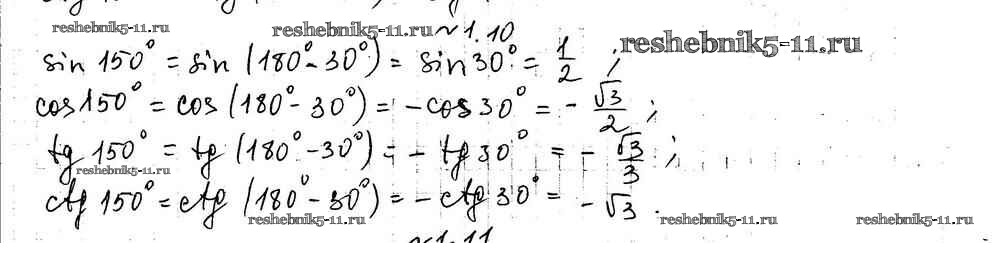 reshebnik5-11.ru reshebnik5-11.ru №1.10
sin 150° = sin (180° - 30°) = sin 30° = 1/2 ; reshebnik5-11.ru
cos 150° = cos (180° - 30°) = - cos 30° = - √3/2 ;
tg 150° = tg (180° - 30°) = - tg 30° = - √3/3 ;
reshebnik5-11.ru
ctg 150° = ctg (180° - 30°) = - ctg 30° = - √3 .
reshebnik5-11.ru reshebnik5-11.ru reshebnik5-11.ru
№1.11